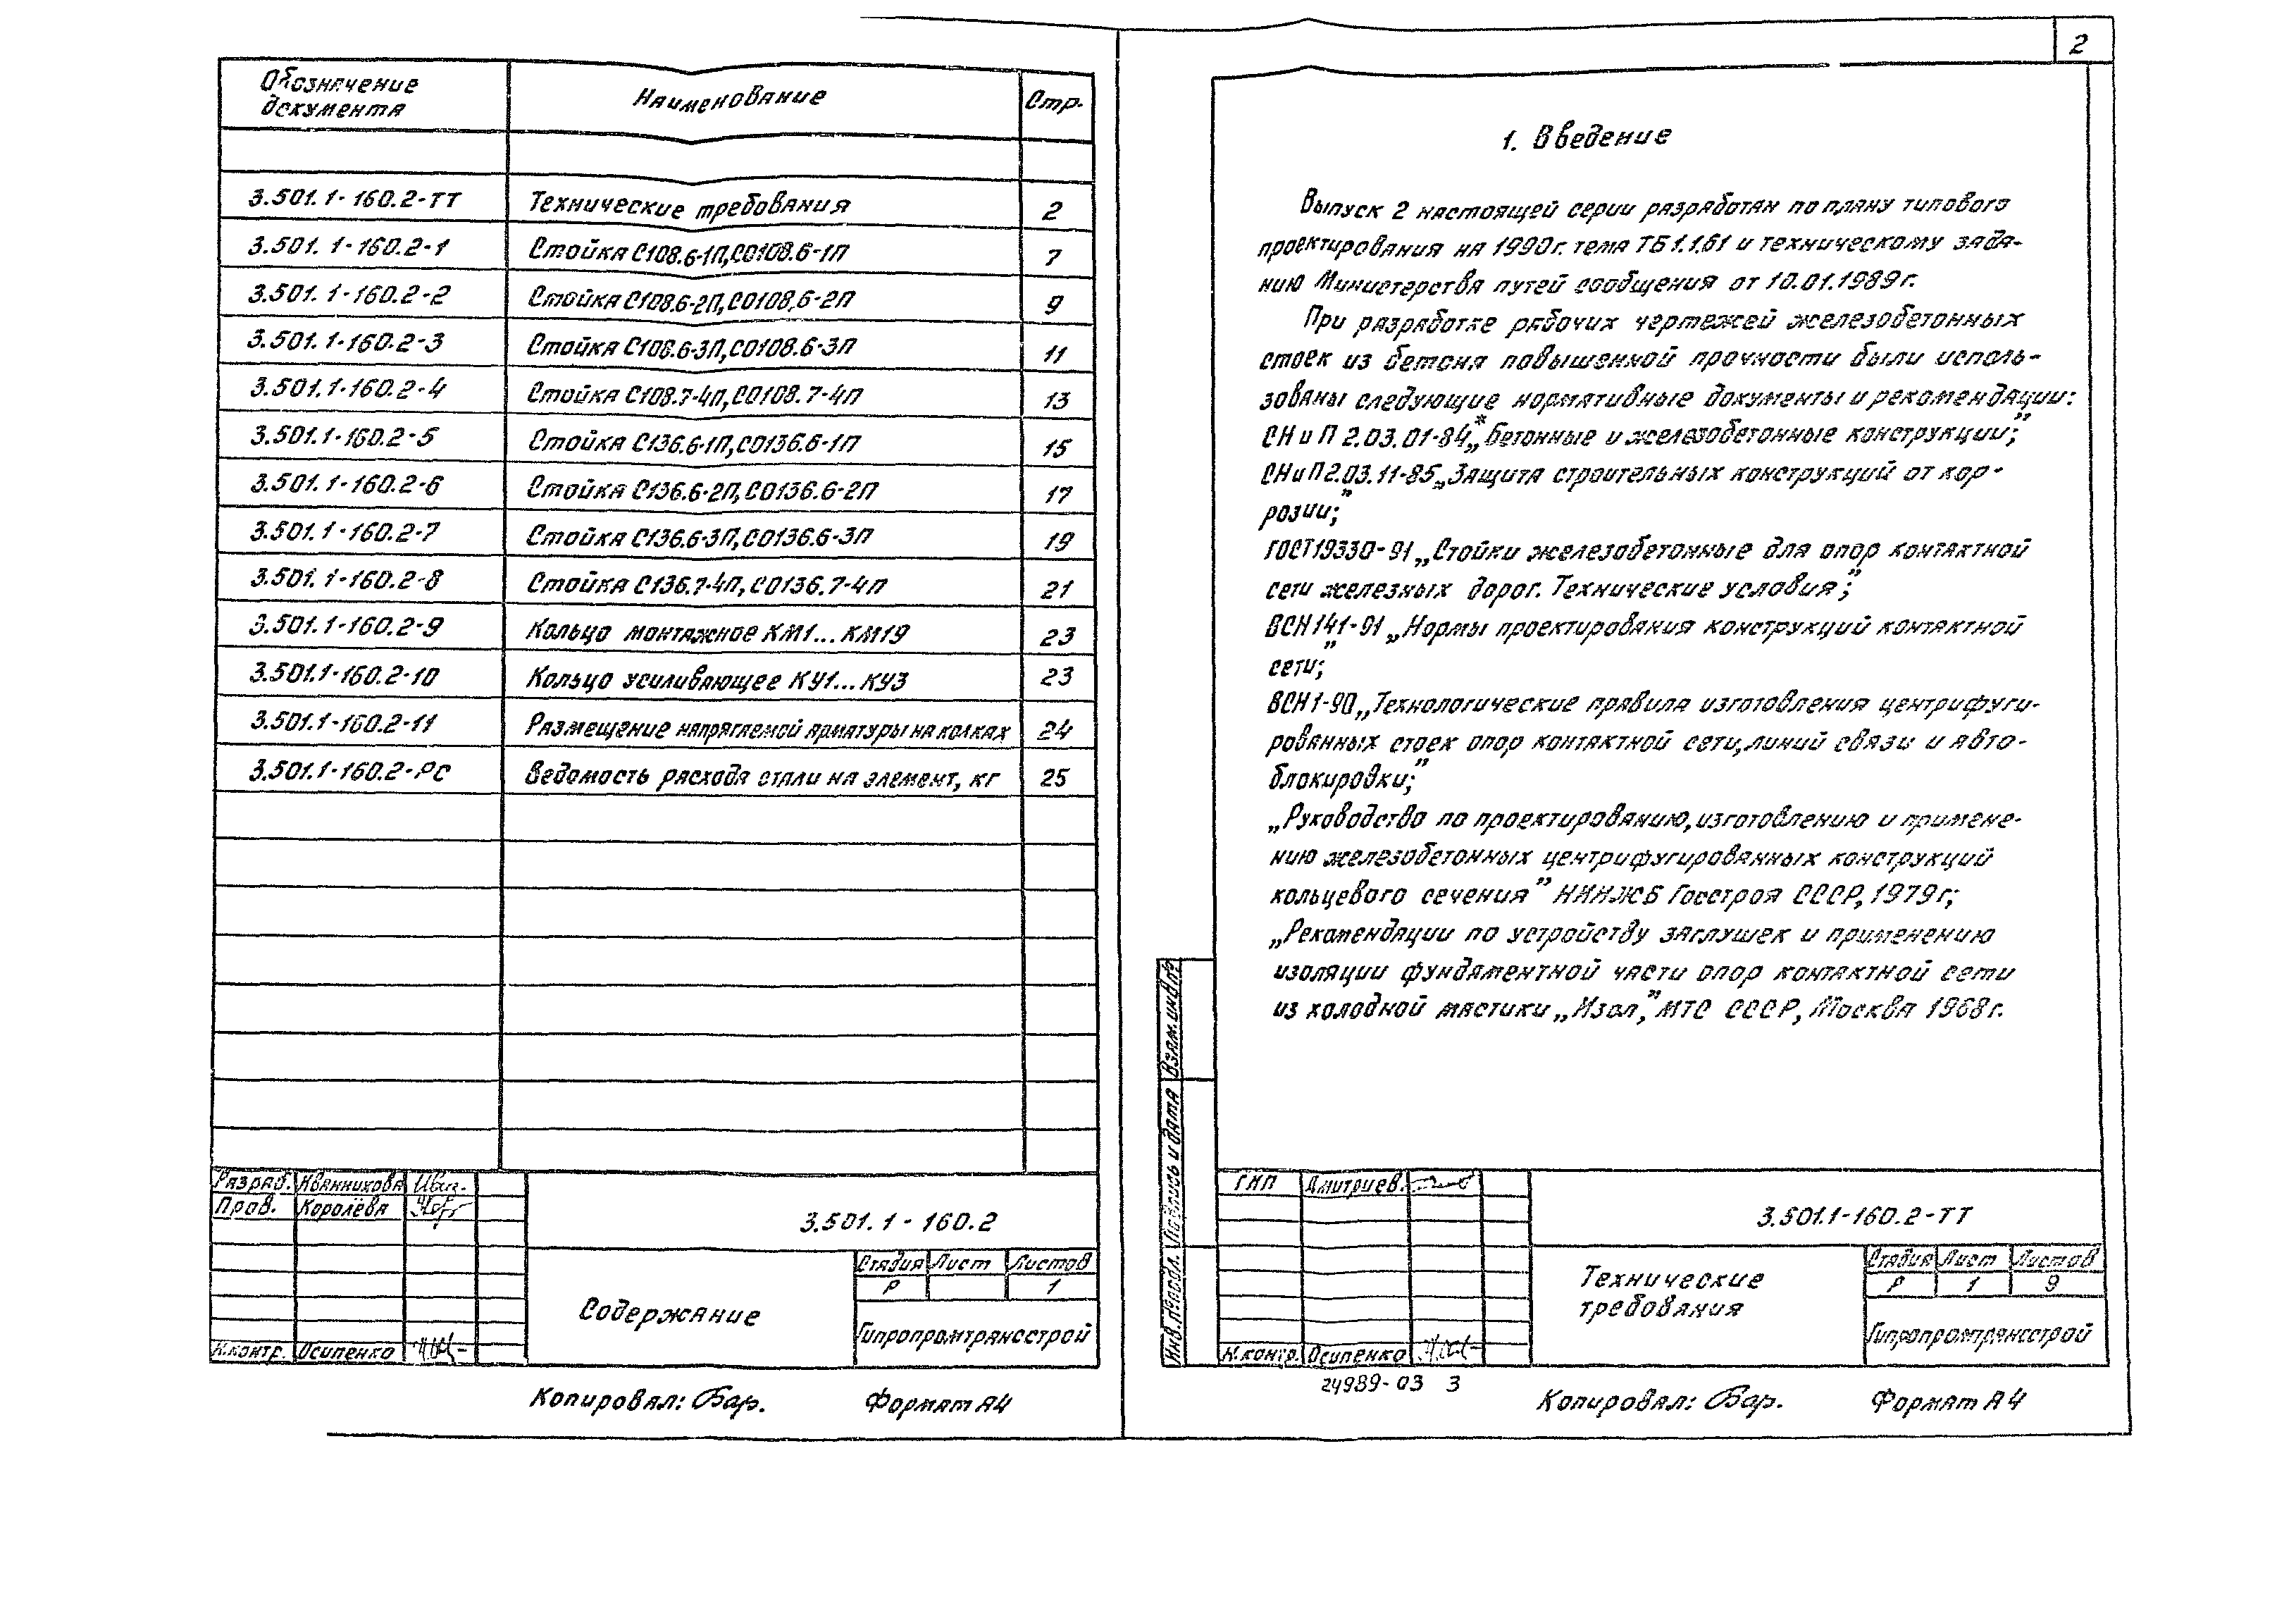 Обозначение документа Наименование Стр.
3.501.1-160.2-ТТ Технические требования 2
3.501.1-160.2-1 Стойка С108.6-1П,СО108.6-1П 7
3.501.1-160.2-2 Стойка С108.6-2П,СО108.6-2П 9
3.501.1-160.2-3 Стойка С108.6-3П,СО108.6-3П 11
3.501.1-160.2-4 Стойка С108.7-4П,СО108.7-4П 13
3.501.1-160.2-5 Стойка С136.6-1П,СО136.6-1П 15
3.501.1-160.2-6 Стойка С136.6-2П,СО136.6-2П 17
3.501.1-160.2-7 Стойка С136.6-3П,СО136.6-3П 19
3.501.1-160.2-8 Стойка С136.7-4П,СО136.7-4П 21
3.501.1-160.2-9 Кольцо монтажное КМ1...КМ19 23
3.501.1-160.2-10 Кольцо усиливающее КУ1...КУ3 23
3.501.1-160.2-11 Размещение напрягаемой арматуры на колках 24
3.501.1-160.2-РС Ведомость расхода стали на элемент, кг 25
Разраб. Иванникова
Пров. Королёва
Н.контр. Осипенко
3.501.1-160.2
Содержание
Стадия Лист Листов
Р 1
Гипропромтрансстрой
Копировал: Бар. Формат А4
2
1. Введение
Выпуск 2 настоящей серии разработан по плану типового
проектирования на 1990г. тема ТБ1.1.61 и техническому зада-
нию Министерства путей сообщения от 10.01.1989г.
При разработке рабочих чертежей железобетонных
стоек из бетона повышенной прочности были исполь-
зованы следующие нормативные документы и рекомендации:
СНиП 2.03.01-84* „Бетонные и железобетонные конструкции";
СНиП 2.03.11-85 „Защита строительных конструкций от кор-
розии";
ГОСТ19330-91 „Стойки железобетонные для опор контактной
сети железных дорог. Технические условия";
ВСН 141-91 „Нормы проектирования конструкций контактной
сети";
ВСН 1-90 „Технологические правила изготовления центрифуги-
рованных стоек опор контактной сети, линий связи и авто-
блокировки";
„Руководство по проектированию, изготовлению и примене-
нию железобетонных центрифугированных конструкций
кольцевого сечения" НИИЖБ Госстроя СССР, 1979г;
„Рекомендации по устройству заглушек и применению
изоляции фундаментной части опор контактной сети
из холодной мастики „Изол", МТС СССР, Москва 1968г.
Взам.инв.№
Подпись и дата
Инв.№подл.
ГИП Дмитриев.
Н.контр. Осипенко
3.501.1-160.2-ТТ
Технические
требования
Стадия Лист Листов
Р 1 9
Гипропромтрансстрой
24989-03 3
Копировал: Бар. Формат А4